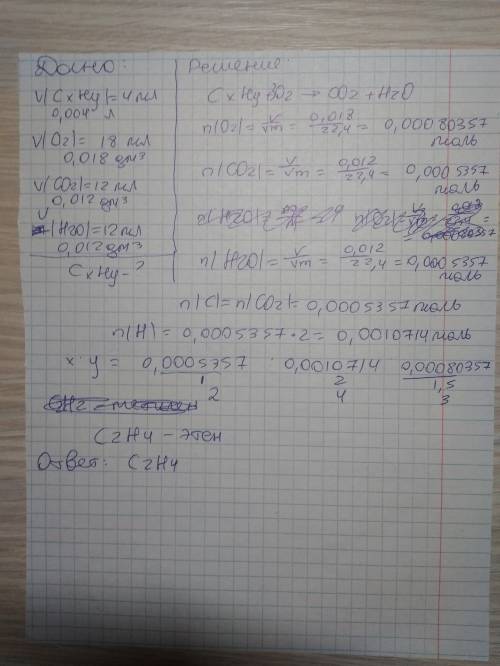 Дано:
V(CxHy)=4 мл
0,004 л
V(O2)= 18 мл
0,018 дм3
V(CO2)=12 мл
0,012 дм3
V(H2O)=12 мл
0,012 дм3
CxHy-?
Решение:
CxHy+3O2 → CO2 + H2O
n(O2)= V/Vm = 0,018/22,4 = 0,00080357
моль
n(CO2)= V/Vm = 0,012/22,4 = 0,0005357
моль
n(H2O)= V/Vm = 0,012/22,4 = 0,0005357
моль
n(C)=n(CO2)=0,0005357 моль
n(H)= 0,0005357·2= 0,0010714 моль
x:y = 0,0005357 : 0,0010714 0,00080357
1 2 1,5
2 4 3
C2H4 - этен
Ответ: C2H4